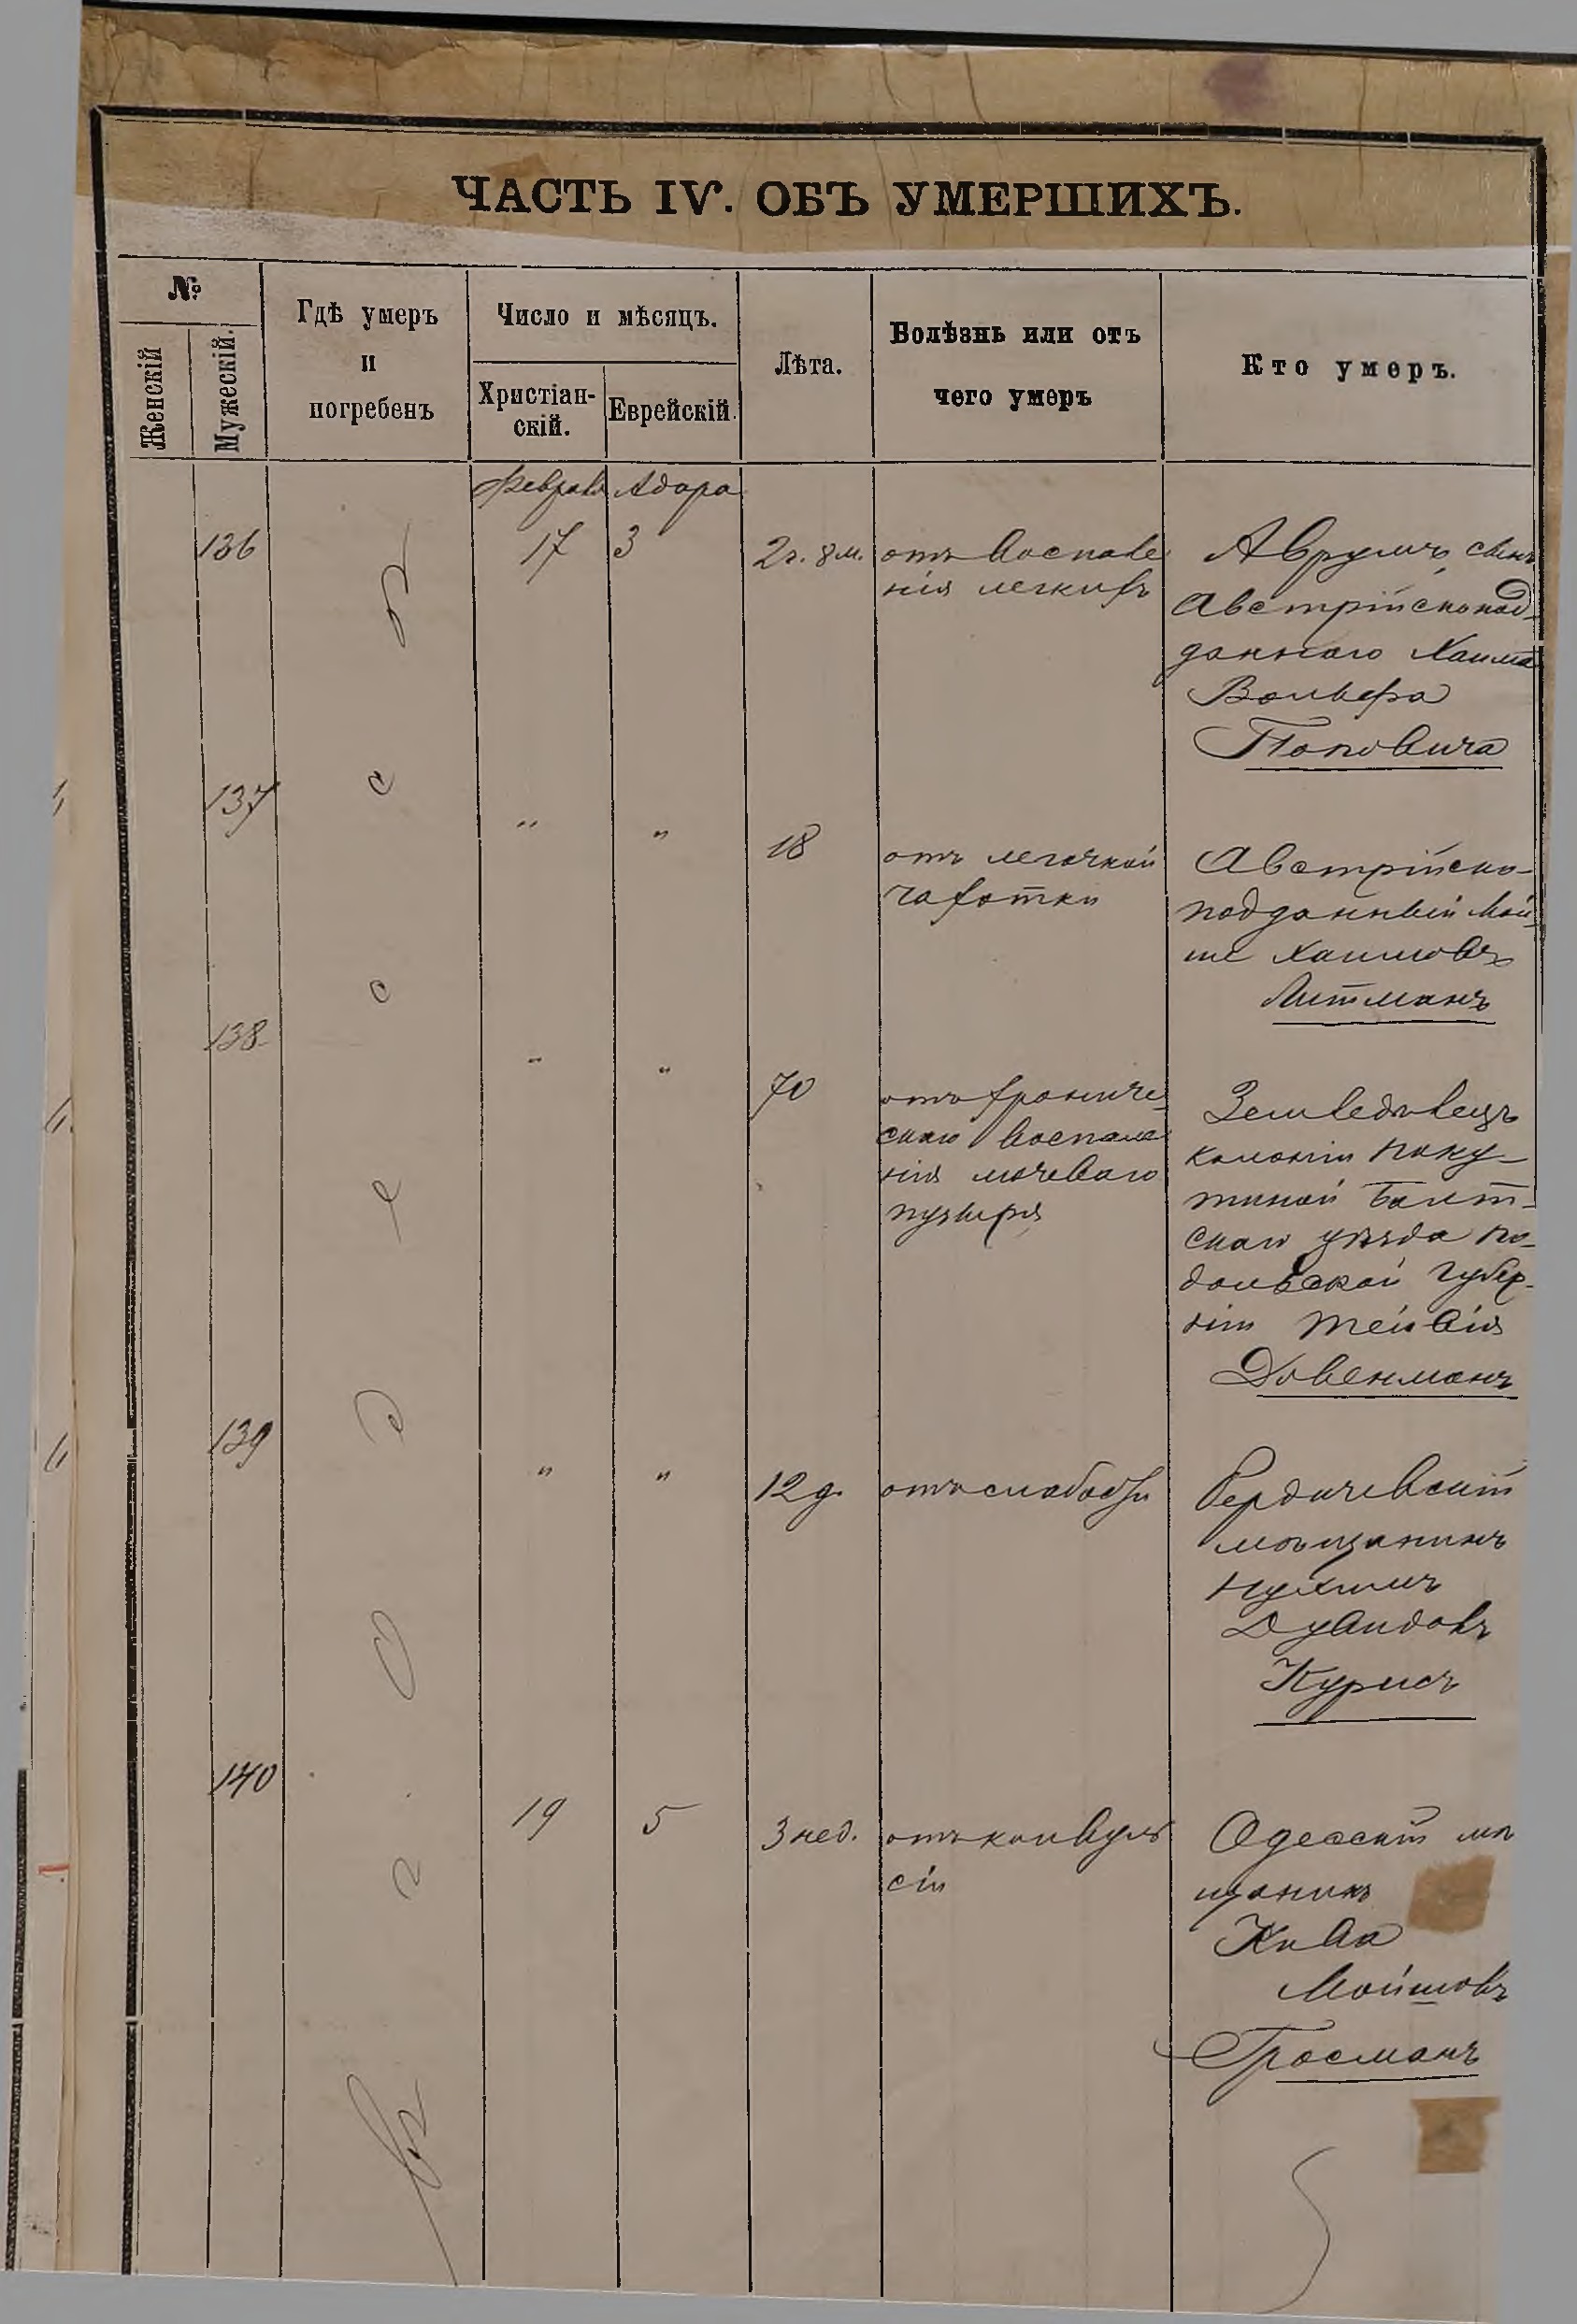 ЧАСТЬ IV. ОБЪ УМЕРШИХЪ.
№
Женскій
Мужескій.
Гдѣ умеръ
и
погребенъ
Число и мѣсяцъ.
Христіан-
скій.
Еврейскій.
Лѣта.
Болѣзнь или отъ
чего умеръ
Кто умеръ.
Февраль Адара
136
17
3
2 г. 8 м.
отъ воспале
нія легкихъ
Аврумъ, сынъ
Австрійскопод-
даннаго Хаима
Вольфа
Поповича
137
"
"
18
отъ легочной
чахотки
Австрійско-
подданный Мой-
ше Хаимовъ
Литманъ
138
"
"
70
отъ хрониче-
скаго воспале
нія мочеваго
пузыря
Земледѣлецъ
колоніи Поку-
тиной Балт-
скаго уѣзда По-
дольской губер-
ніи
Довенманъ
139
"
"
12 д.
отъ слабости
Бердичевскій
мѣщанинъ
Нухимъ
Дувидовъ
Курисъ
140
19
5
3 нед.
отъ конвуль
сіи
Одесскій мѣ
щанинъ
Кива
Мойшовъ
Гросманъ
въ Одессѣ